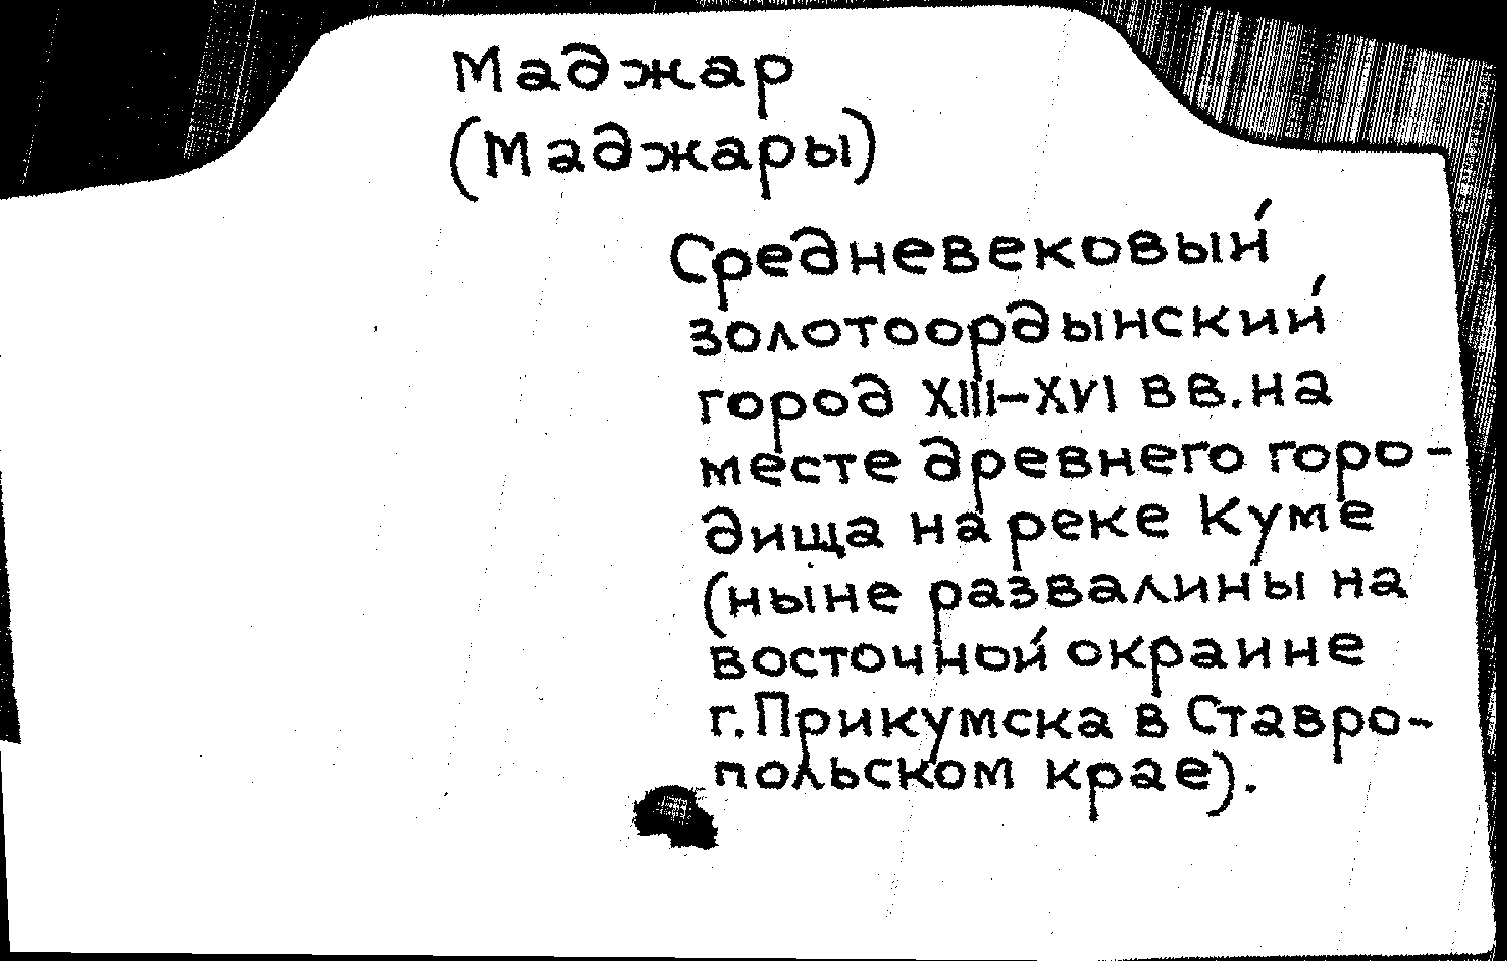 Маджар
(Маджары)
Средневековый
золотоордынский
город XIII-XVI вв. на
месте древнего горо-
дища на реке Куме
(ныне развалины на
восточной окраине
г. Прикумска в Ставро-
польском крае).